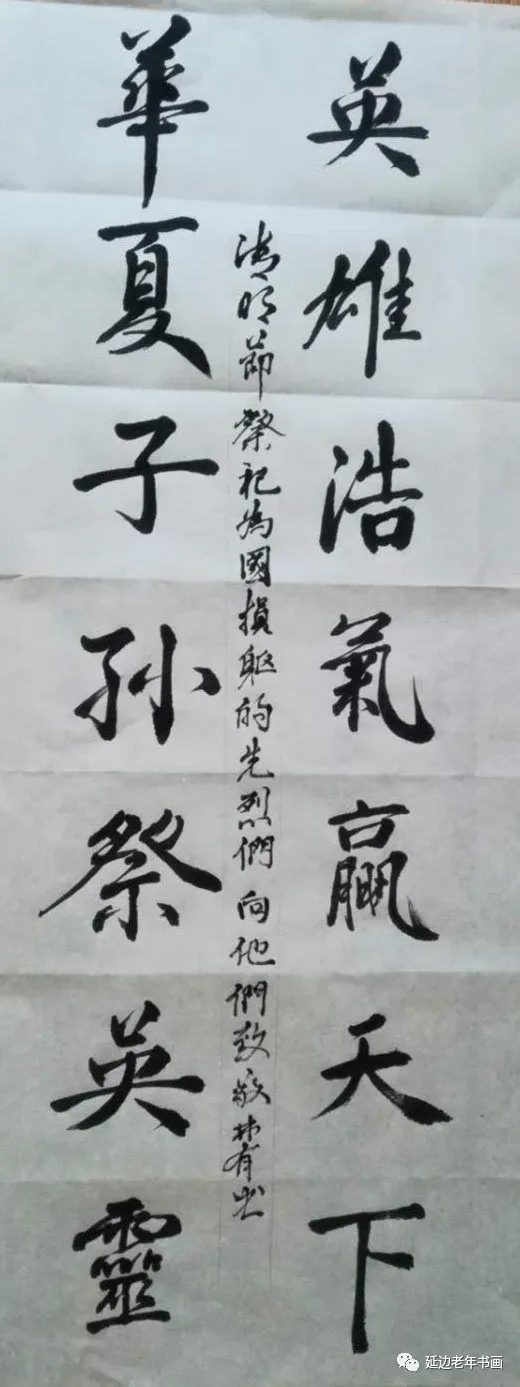 英雄浩氣贏天下
清明節祭祀為國損躯的先烈們向他們致敬
華夏子孫祭英靈
延边老年书画